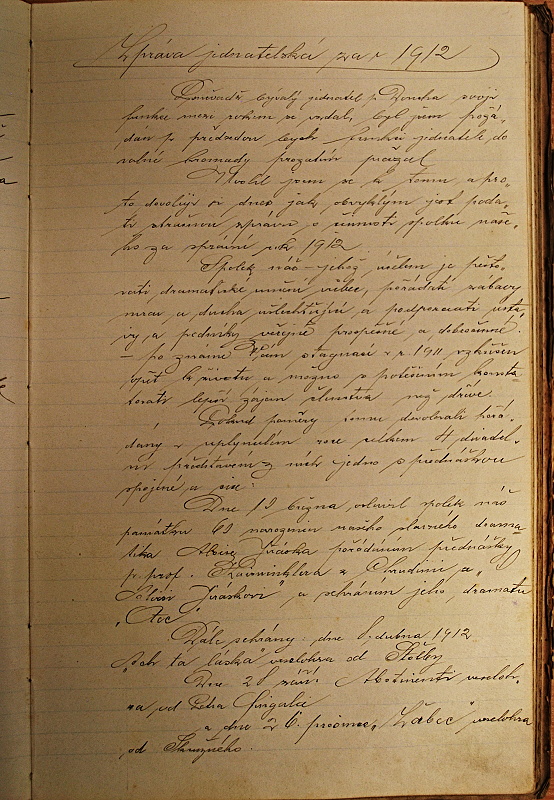 Zpráva jednatelská za r 1912
Poněvadž bývalý jednatel p. Doucha svoji
funkce mezi rokem se vzdal, byl jsem požá-
dán p. předsedou bych funkci jednatele do
valné hromady prozatím převzal
Uvolil jsem se k tomu a pro-
to dovoluji si dnes jak obvyklým jest poda-
ti stručnou zprávu o činnosti spolku naše-
ho za správní rok 1912.
Spolek náš – jehož účelem je pěsto-
vati dramatické umění vůbec, pořádati zábavy
mrav a ducha ušlechťující a podporovati ústa-
vy a podniky veřejně prospěšné a dobročinné.
– po známé Vám stagnaci v r. 1911 vzkříšen
opět k životu a možno s potěšením konsta-
tovati lepší zájem členstva než dříve.
Pokud poměry tomu dovolovali pořá-
dány v uplynulém roce celkem 4 divadel-
ní představení z nichž jedno s přednáškou
spojené a sice:
Dne 10 března oslavil spolek náš
památku 60 narozenin našeho slavného drama-
tika Aloise Jiráska pořádáním přednášky
p. prof. z Chrudimi a
Jiráskovi" a sehráním jeho dramatu
„Otec"
Dále sehrány: dne 8. dubna 1912
ta láska" veselohra od Štolby
Dne 28 září: Abstinenti veseloh-
ra od Petra Fingala
a dne 26. prosince „ veselohra
od